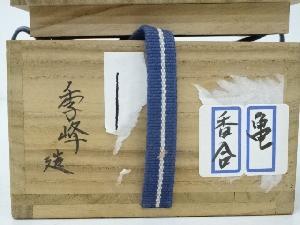 亀
香合
季峰
造